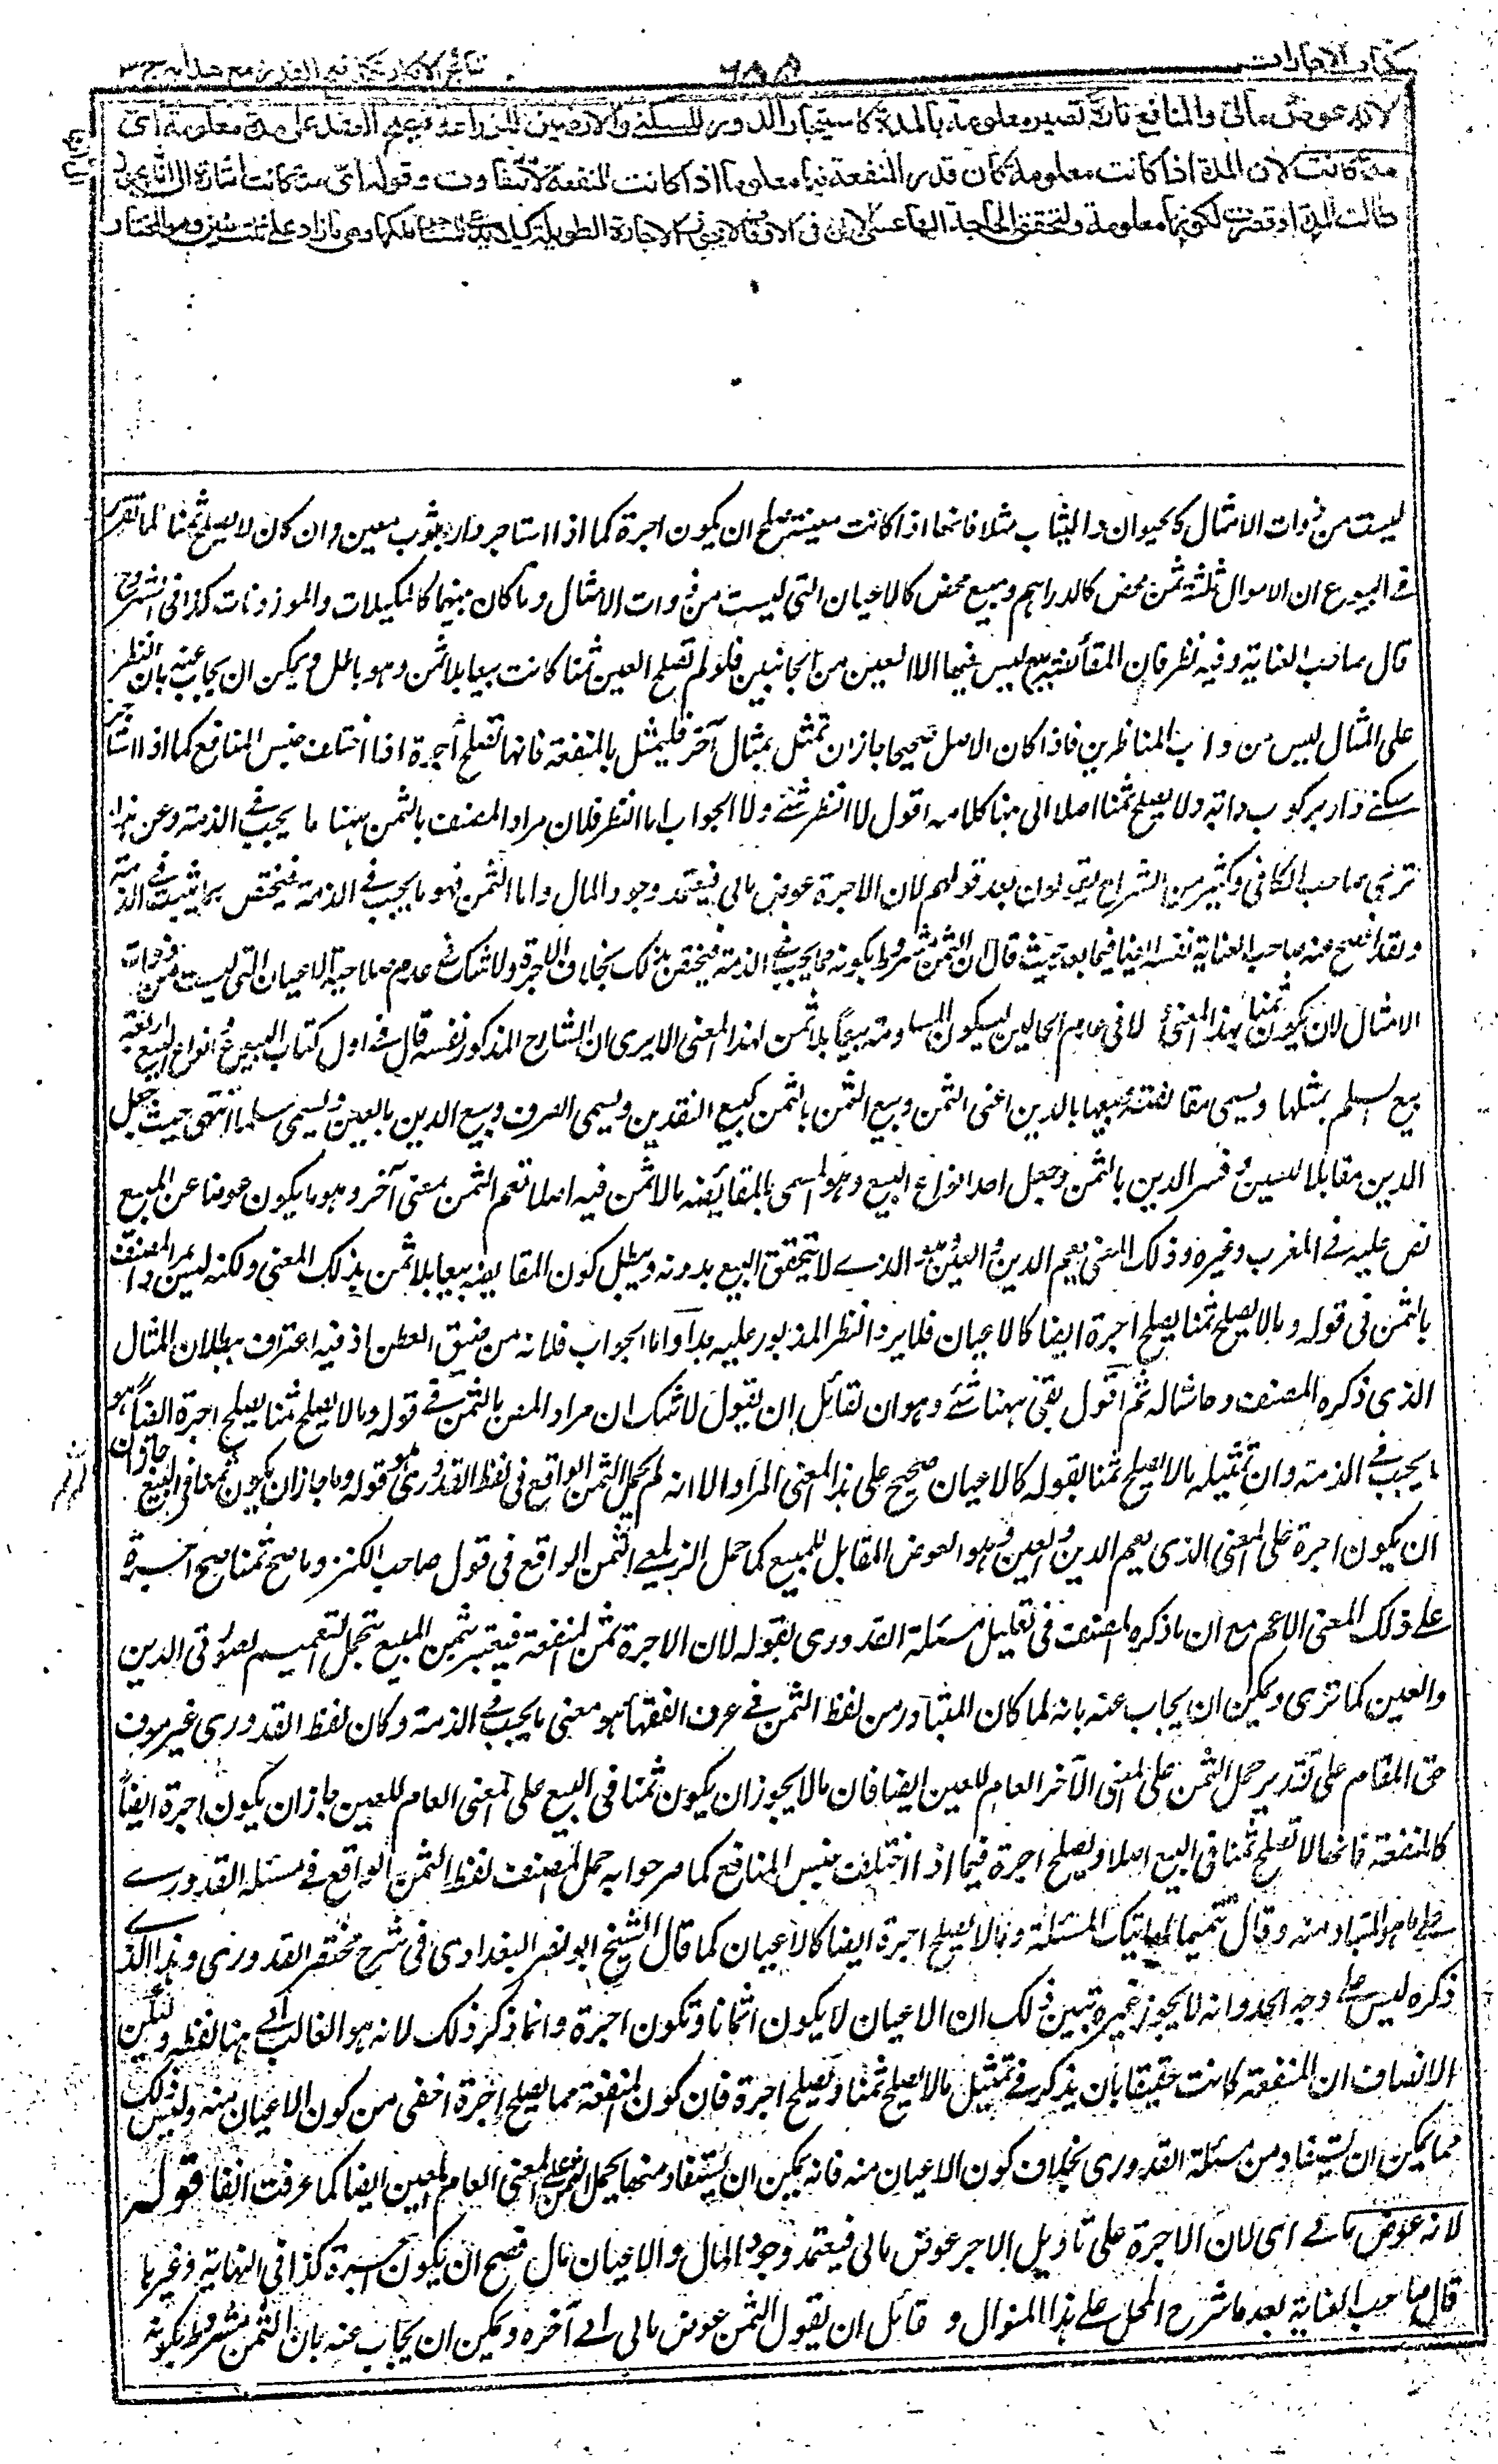 كتاب الاجارات
٦٥٥
نتائج الافكار تكملة فتح القدير مع هدايه ج ٣
لانه عوض مالي والمنافع تارة تصير معلومة بالمدة كاستيجار الدور للسكنى والارضين للزراعة فيصح العقد على مدة معلومة اى
مدة كانت لان المدة اذا كانت معلومة كان قدر المنفعة فيها معلوما اذا كانت المنفعة لا تتفاوت وقوله اى مدة كانت اشارة الى انه يجوز
طالت المدة او قصرت لكونها معلومة ولتحقق الحاجة اليها عسى الا ان في الاوقاف لا يجوز الاجارة الطويلة كيلا يدعى المستاجر ملكها وهى ما زاد على ثلث سنين وهو المختار
ليست من ذوات الامثال كالحيوان والثياب مثلا فانها اذا كانت معينة تصلح ان يكون اجرة كما اذا استاجر دارا بثوب معين وان كان لا يصلح ثمنا لما تقرر
فے البيوع ان الاموال ثلثة ثمن محض كالدراهم ومبيع محض كالاعيان التى ليست من ذوات الامثال وما كان بينهما كالمكيلات والموزونات كذا فى الشروح
قال صاحب العناية وفيه نظر فان المقايضة بيع ليس فيها الا العين من الجانبين فلو لم تصلح العين ثمنا كانت بيعا بلا ثمن وهو باطل ويمكن ان يجاب عنه بان النظر
على المثال ليس من داب المناظرين فاذا كان الاصل صحيحا جاز ان تمثل بمثال آخر فليمثل بالمنفعة فانها تصلح أجرة اذا اختلف جنس المنافع كما اذا استاجر
سكنے دار بركوب دابة ولا يصلح ثمنا اصلا الى هنا كلامه اقول لا النظر شئے ولا الجواب اما النظر فلان مراد المصنف بالثمن ههنا ما يجب فے الذمة وعن هذا
ترى صاحب الكافى وكثير من الشراح يقولون بعد قولهم لان الاجرة عوض مالى فيعتمد وجود المال واما الثمن فهو ما يجب فے الذمة فيختص بما يثبت فے الذمة
ولقد افصح عنه صاحب العناية نفسه ايضا فيما بعد حيث قال ان الثمن مشروط بكونه مما يجب فے الذمة فيختص بذلك بخلاف الاجرة ولا شك فے عدم صلاحية الاعيان التى ليست من ذوات
الامثال لان يكون ثمنا بهذا المعنى لا فى عامة الحالين ليكون المساومة بيعاً بلا ثمن لهذا المعنى الا يرى ان الشارح المذكور نفسه قال فے اول كتاب البيوع انواع البيع اربعة
بيع السلع بمثلها ويسمى مقايضة وبيعها بالدين اعنى الثمن وبيع الثمن بالثمن كبيع النقدين ويسمى الصرف وبيع الدين بالعين ويسمى سلما انتهى حيث جعل
الدين مقابلا للعين وفسر الدين بالثمن وجعل احد انواع البيع وهو المسمى بالمقايضة مالا ثمن فيه اصلا نعم للثمن معنى آخر وهو ما يكون عوضا عن المبيع
نص عليه فے المغرب وغيره وذلك المعنى يعم الدين والعين وهو الذے لا يتحقق البيع بدونه ويبطل كون المقايضة بيعا بلا ثمن بذلك المعنى ولكنه ليس مراد المصنف
بالثمن فى قوله وما لا يصلح ثمنا يصلح اجرة ايضا كالاعيان فلا يرد النظر المذبور عليه بدأ واما الجواب فلانه من ضيق العطن اذ فيه اعتراف ببطلان المثال
الذى ذكره المصنف وحاشا له ثم اقول بقى ههنا شئے وهو ان لقائل ان يقول لا شك ان مراد المصنف بالثمن فے قوله وما لا يصلح ثمنا يصلح اجرة ايضا هو
ما يجب فے الذمة وان تمثيله ما لا يصلح ثمنا بقوله كالاعيان صحيح على هذا المعنى المراد الا انه لم يحمل الثمن الواقع فى لفظ القدورى وهو قوله وما جاز ان يكون ثمنا فى البيع جاز ان
ان يكون اجرة على المعنى الذى يعم الدين والعين وهو العوض المقابل للمبيع كما حمل الزيلعے الثمن الواقع فى قول صاحب الكنز وما صح ثمنا صح اجرة
علے ذلك المعنى الاعم مع ان ما ذكره المصنف فى تعليل مسئلة القدورى بقوله لان الاجرة ثمن المنفعة فيعتبر بثمن المبيع يتحمل التعميم لصورتى الدين
والعين كما ترى ويمكن ان يجاب عنه بانه لما كان المتبادر من لفظ الثمن فے عرف الفقهاء هو معنى ما يجب فے الذمة وكان لفظ القدورى غير موف
حق المقام على تقدير حمل الثمن على المعنى الآخر العام للعين ايضا فان ما لا يجوز ان يكون ثمنا فى البيع على المعنى العام للعين جاز ان يكون اجرة ايضاً
كالمنفعة فانها لا تصلح ثمنا فى البيع اصلا وتصلح اجرة فيما اذا اختلفت جنس المنافع كما صرحوا به حمل المصنف لفظ الثمن الواقع فے مسئلة القدورے
علے ما هو المتبادر منه وقال تتميما لهاتيك المسئلة وما لا يصلح اجرة ايضا كالاعيان كما قال الشيخ ابو نصر البغدادى فى شرح مختصر القدورى وهذا الذے
ذكره ليس علے وجه الحد وانه لا يجوز غيره تبين ذلك ان الاعيان لا يكون اثمانا وتكون اجرة وانما ذكر ذلك لانه هو الغالب الے هنا لفظه ولكن
الانصاف ان المنفعة كانت حقيقا بان يذكر فے تمثيل ما لا يصلح ثمنا ويصلح اجرة فان كون المنفعة مما يصلح اجرة اخفى من كون الاعيان منه وليس ذلك
مما يمكن ان يستفاد من مسئلة القدورى بخلاف كون الاعيان منه فانه يمكن ان يستفاد منها بحمل الثمن على المعنى العام للعين ايضا كما عرفت انفا قوله
لانه عوض مالے اى لان الاجرة على تاويل الاجر عوض مالى فيعتمد وجود المال والاعيان مال فصح ان يكون اجرة كذا فى النهاية وغيرها
قال صاحب العناية بعد ما شرح المحل علے هذا المنوال و قائل ان يقول الثمن عوض مالى الے آخره ويمكن ان يجاب عنه بان الثمن مشروط بكونه